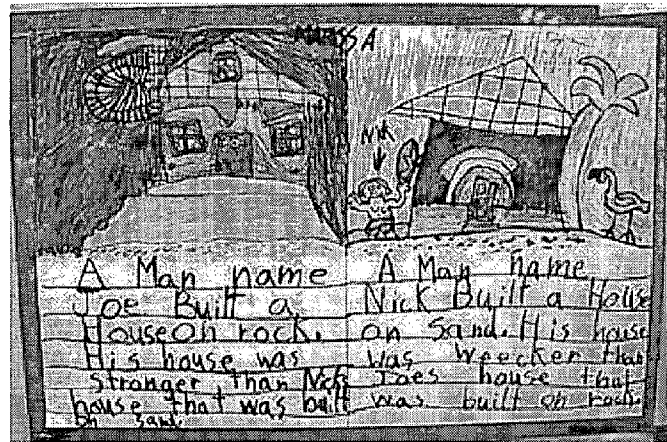 Nick
A Man name
Joe Built a
House on rock.
His house was
Stronger than Nicks
house that was built
on sand.
A Man name
Nick Built a House
on Sand. His house
was Weecker than
Joes house that
was built on rock.